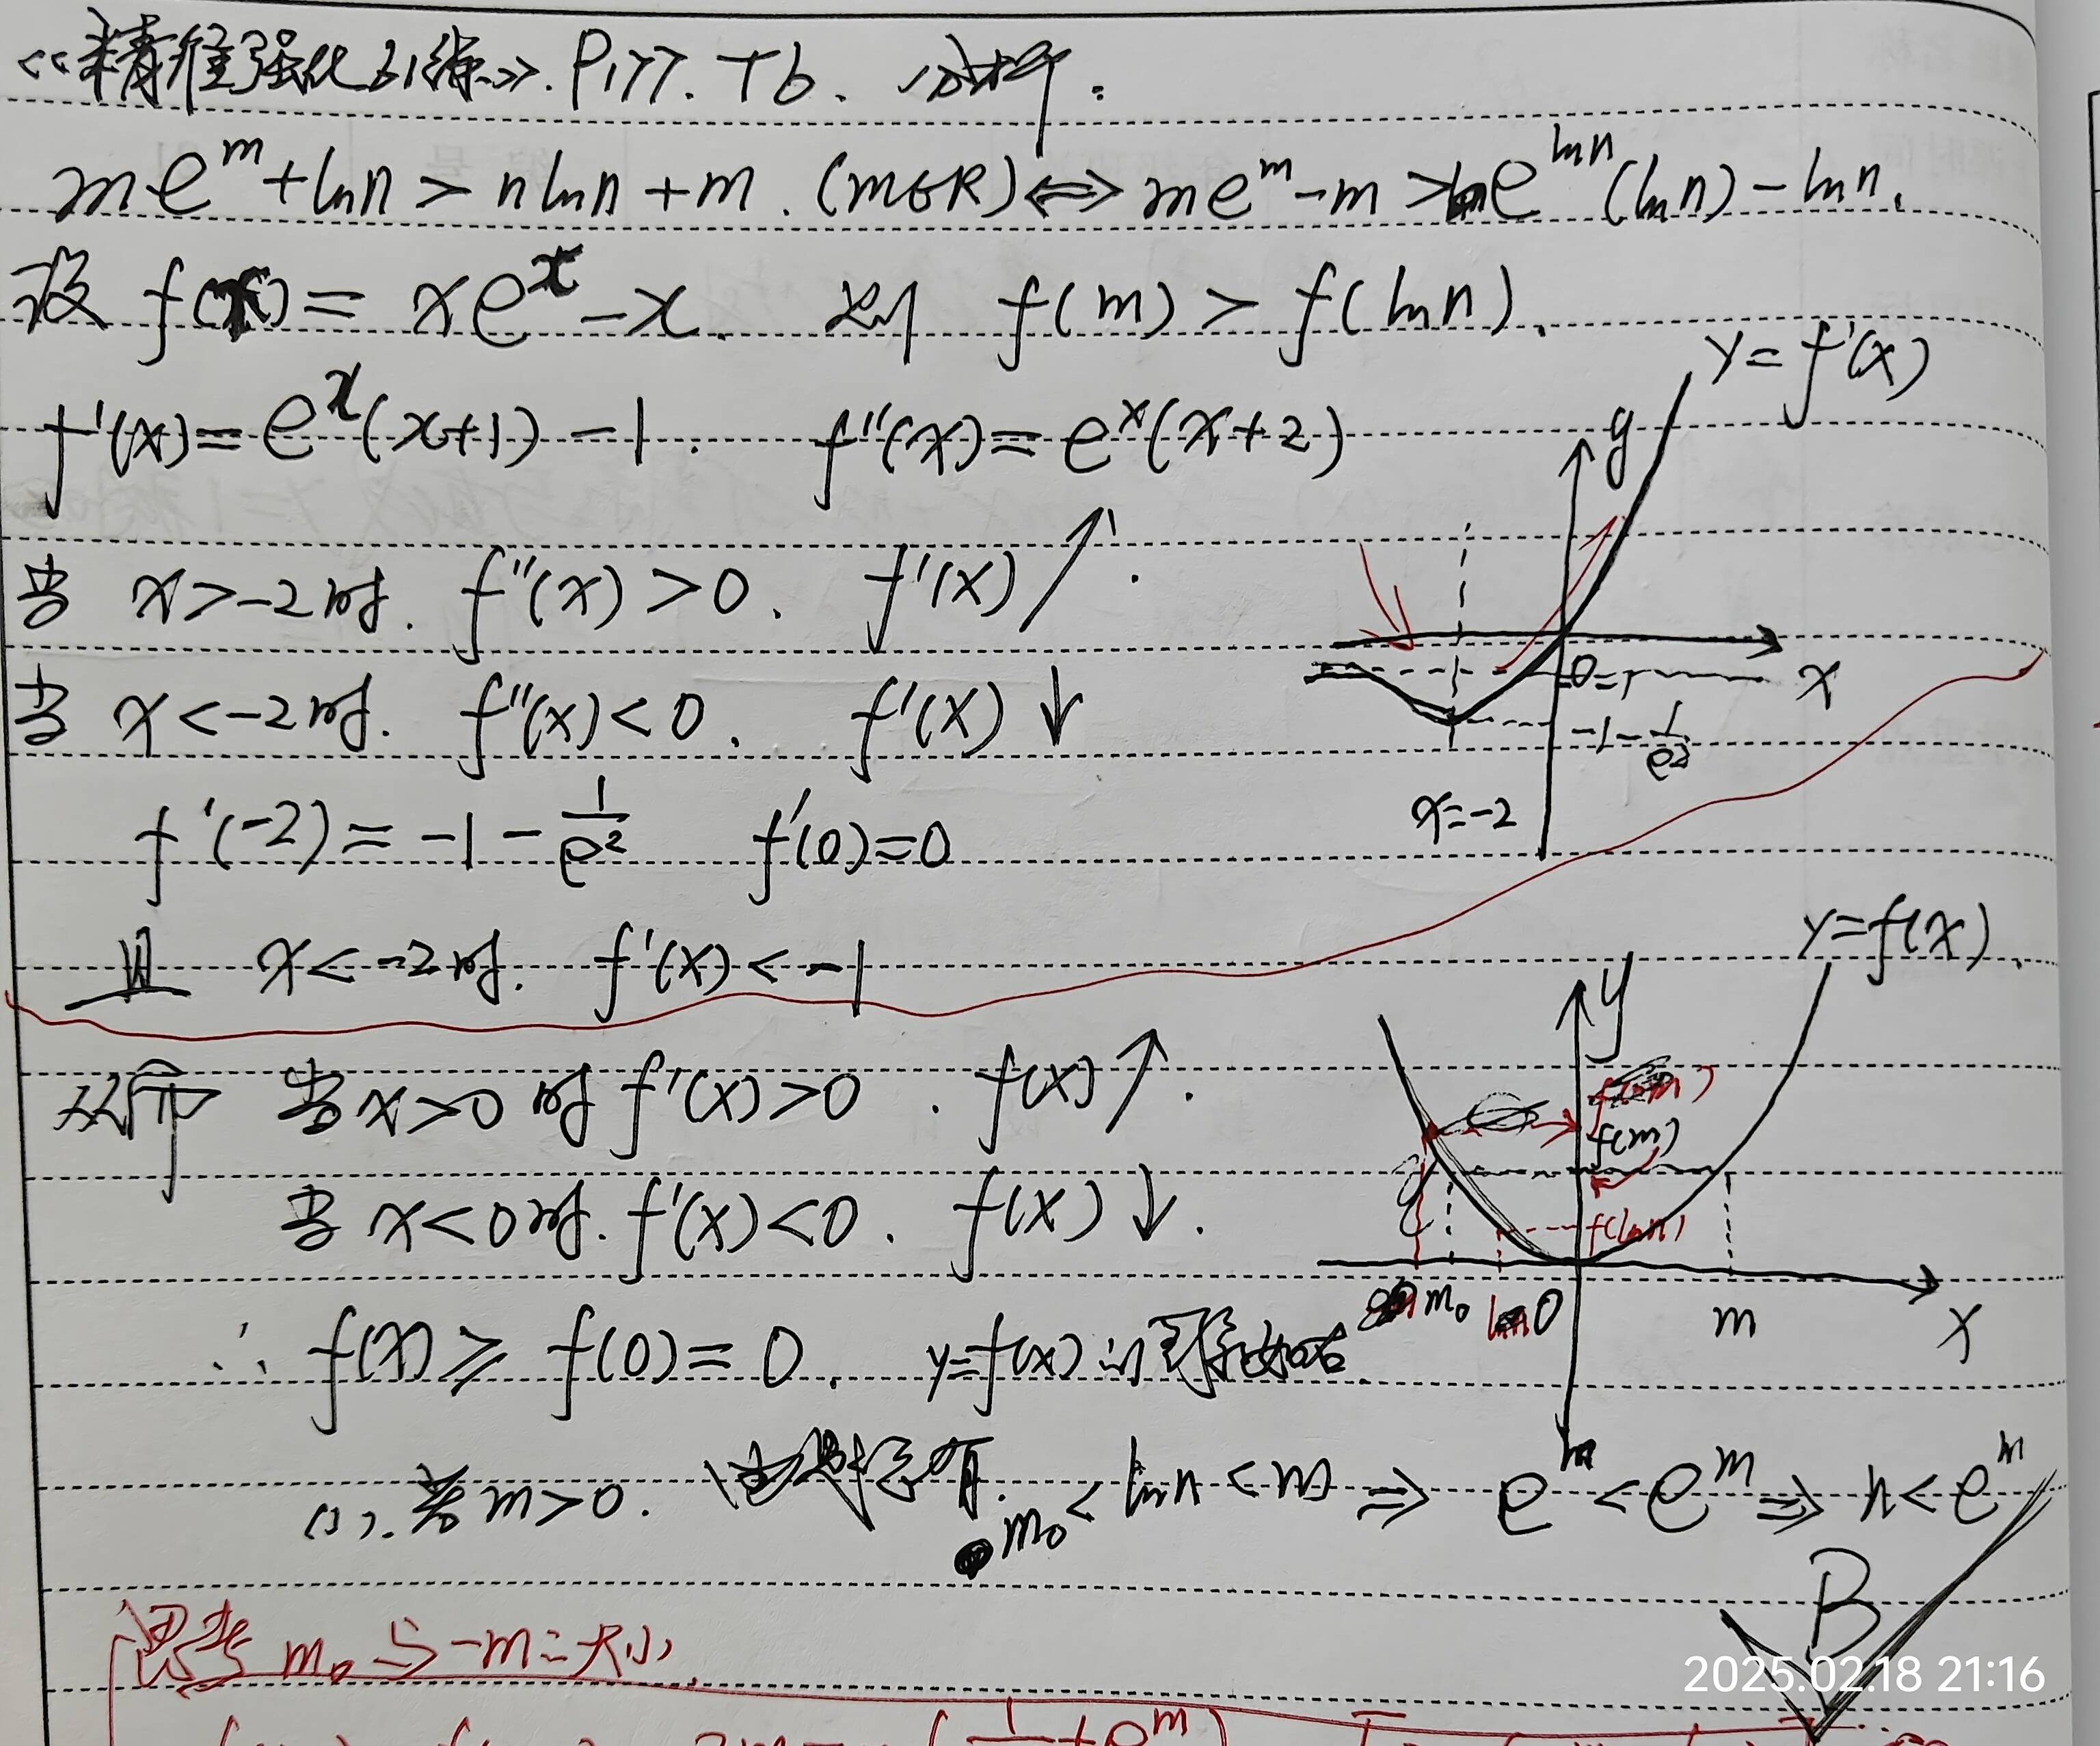 《精准强化训练》. P177. T6. 分析:
me^m + ln n > n ln n + m. (m∈R) ⟺ me^m - m > e^{ln n}(ln n) - ln n.
设 f(x) = xe^x - x. 则 f(m) > f(ln n).
f'(x) = e^x(x+1) - 1. f''(x) = e^x(x+2)
y = f'(x)
y
当 x > -2 时. f''(x) > 0. f'(x) ↗.
当 x < -2 时. f''(x) < 0. f'(x) ↓
0 -1 x
-1 - 1/e^2
x = -2
f'(-2) = -1 - 1/e^2 f'(0) = 0
且 x < -2 时. f'(x) < -1
y = f(x).
y
从而 当 x > 0 时 f'(x) > 0. f(x) ↗.
f(m)
当 x < 0 时. f'(x) < 0. f(x) ↓.
f(ln n)
m₀ ln n 0 m x
∴ f(x) ≥ f(0) = 0. y = f(x) 的图象如右.
(1). 若 m > 0. m₀ < ln n < m ⇒ e^{ln n} < e^m ⇒ n < e^m
B
思考 m₀ 与 -m 之大小.
2025.02.18 21:16